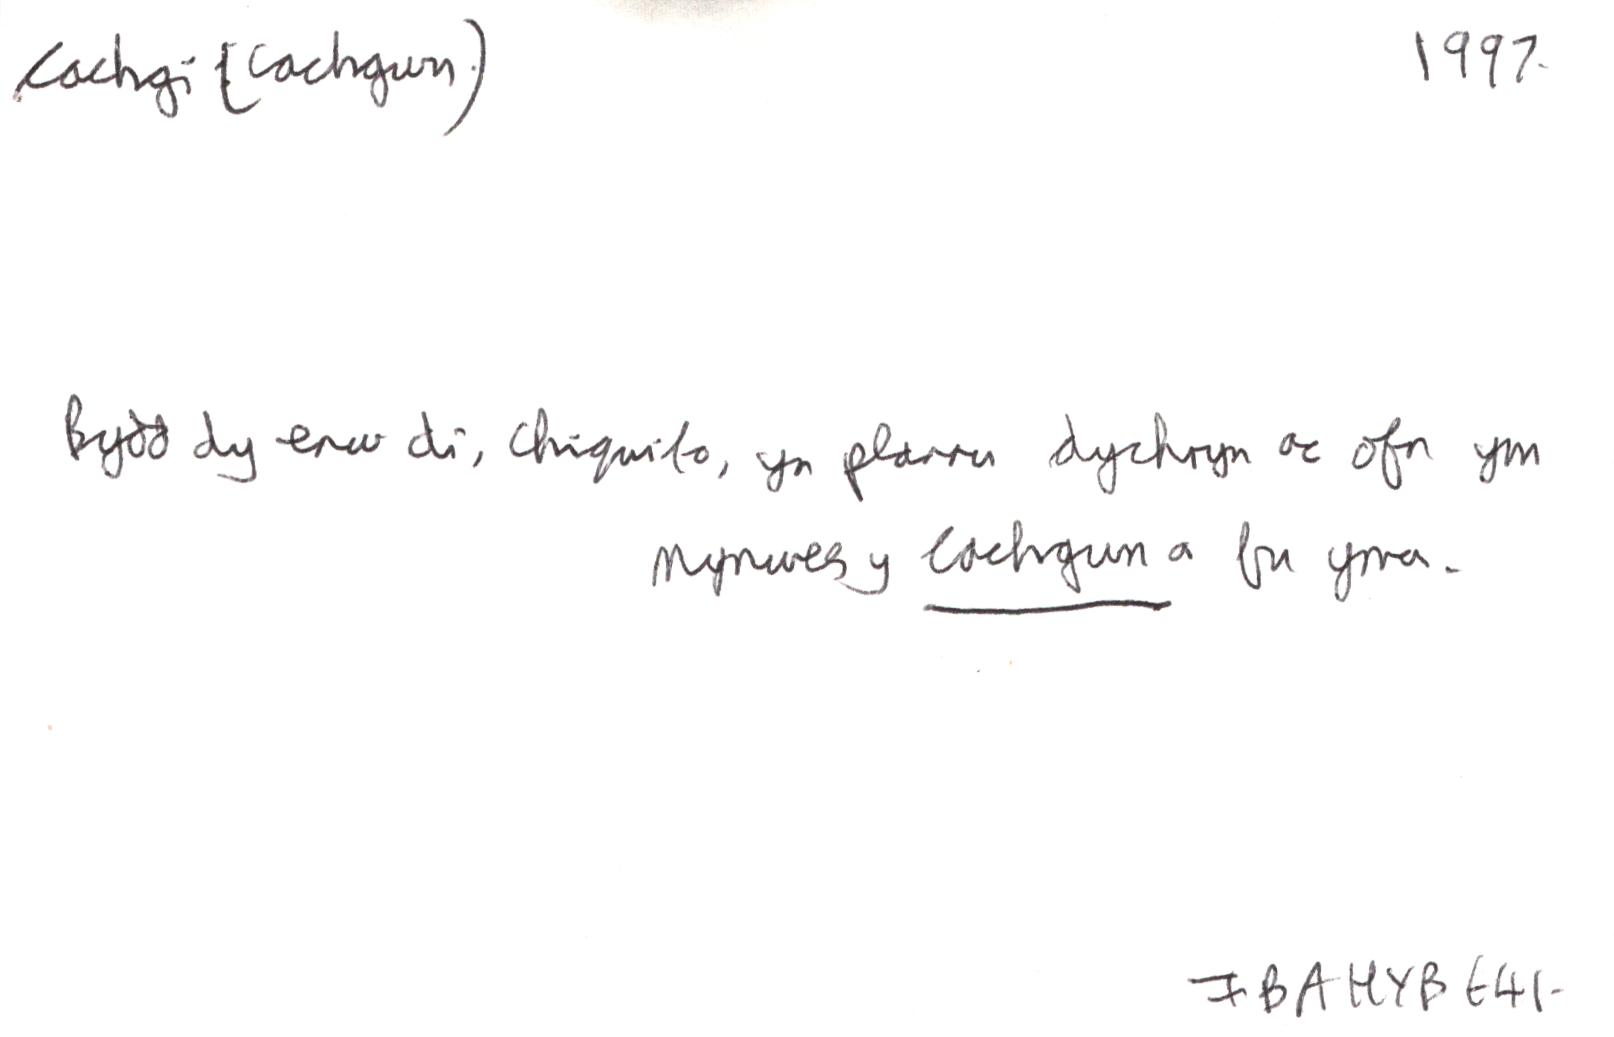 Cachgi {Cachgwn.) 1997.
Bydd dy enw di, Chiquito, yn plannu dychryn ac ofn ym
mynwes y Cachgwn a fu yma.
FBAHYB t41.